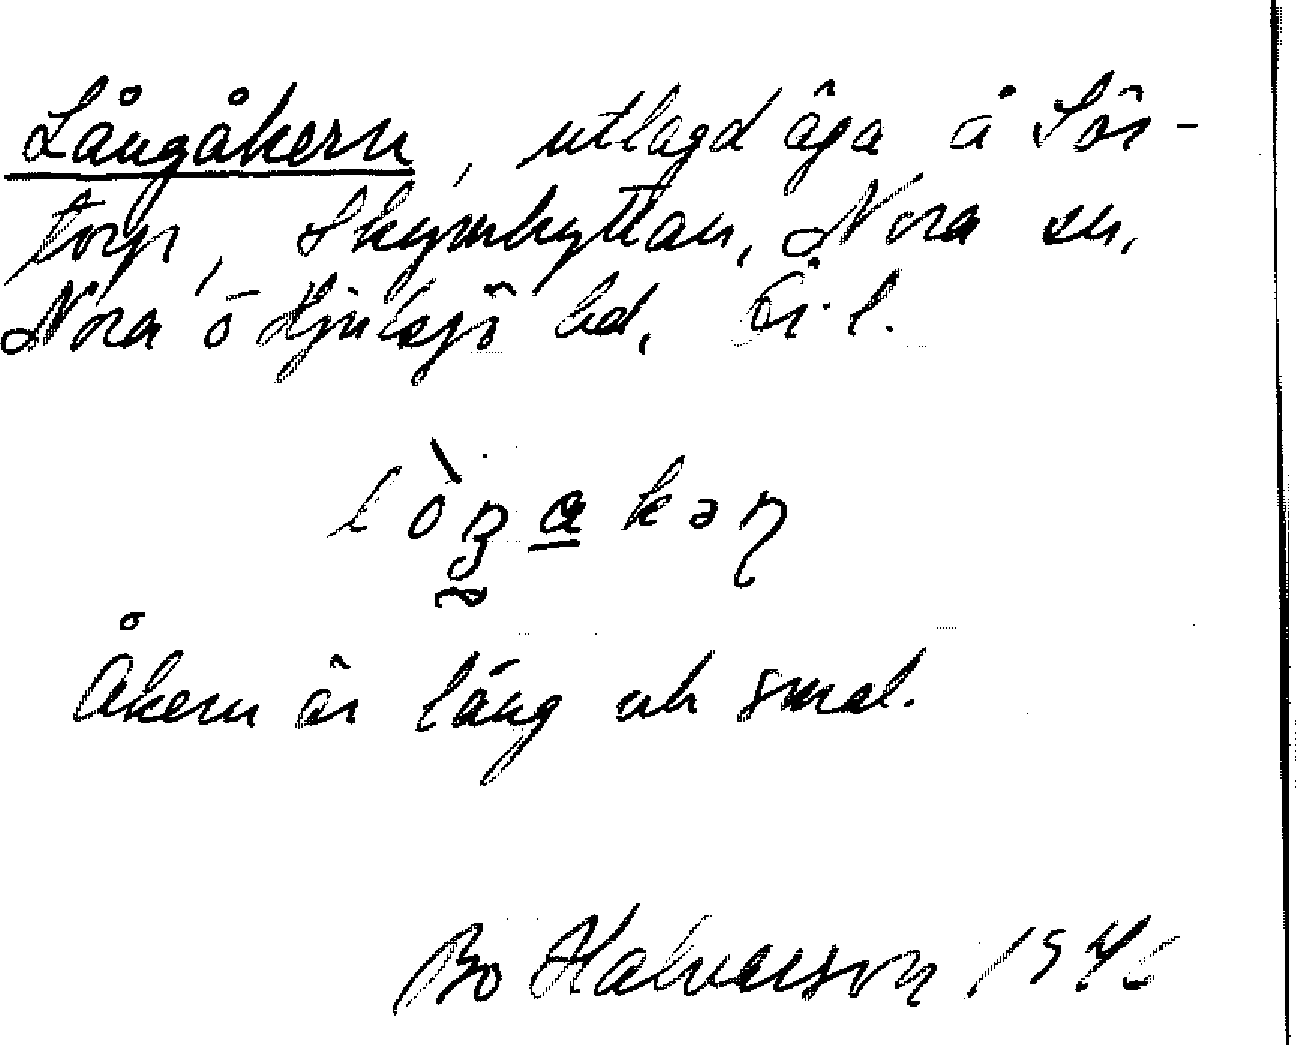 Långåkern, utlagd äga å Sör-
torp, Skymhyttan, Nora sn,
Nora o Hjulsjö bd, Ör. l.
Åkern är lång och smal.
Bo Halvarson